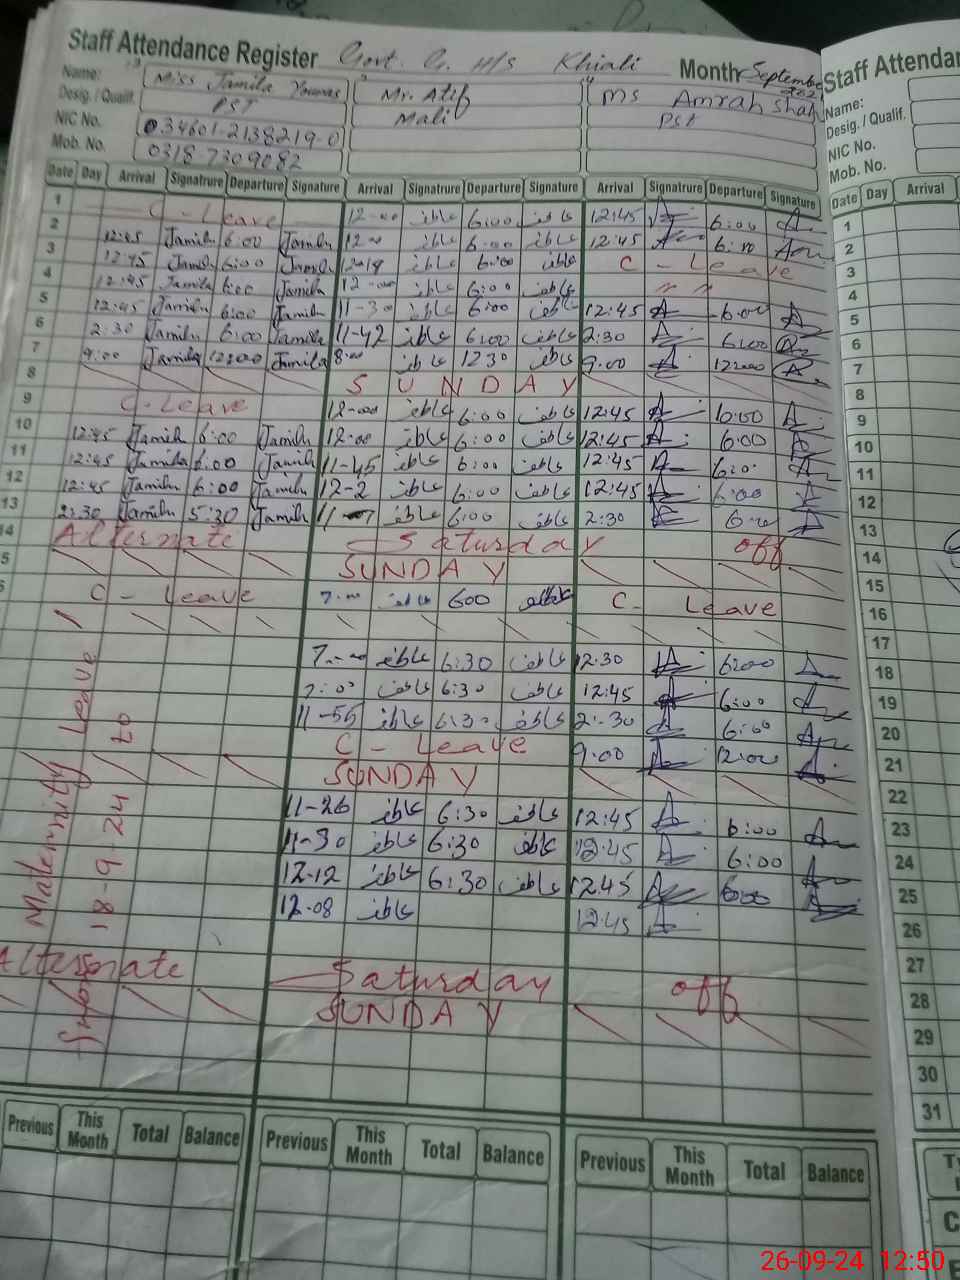 Staff Attendance Register Govt. G. H/S Khiali Month September Staff Attendan
Name: Miss Jamila Younas Mr. Atif Ms Amrah Shah Name:
Desig. / Qualif. PST Mali PST Desig. / Qualif.
NIC No. 34601-2138219-0 NIC No.
Mob. No. 0318-7309082 Mob. No.
Date Day Arrival Signatrure Departure Signature Arrival Signatrure Departure Signature Arrival Signatrure Departure Signature Date Day Arrival
1 C-Leave 12-00 عاطف 6:00 عاطف 12:45 6:00 1
2 12:45 Jamila 6:00 Jamila 12-00 عاطف 6:00 عاطف 12:45 2
3 12:45 Jamila 6:00 Jamila عاطف 6:00 عاطف C - Leave 3
4 12:45 Jamila 6:00 Jamila 12-00 عاطف 6:00 عاطف " " 4
5 12:45 Jamila 6:00 Jamila 11-30 عاطف 6:00 عاطف 12:45 6:00 5
6 2:30 Jamila 6:00 Jamila 11-42 عاطف 6:00 عاطف 2:30 6:00 6
7 9:00 Jamila 12:00 Jamila 8:00 عاطف 12 30 عاطف 9:00 12:00 7
8 SUNDAY 8
9 C-Leave 12-00 عاطف 6:00 عاطف 12:45 6:00 9
10 12:45 Jamila 6:00 Jamila 12-00 عاطف 6:00 عاطف 12:45 6:00 10
11 12:45 Jamila 6:00 Jamila 11-45 عاطف 6:00 عاطف 12:45 11
12 12:45 Jamila 6:00 Jamila 12-2 عاطف 6:00 عاطف 12:45 6:00 12
13 2:30 Jamila 5:30 Jamila عاطف 6:00 عاطف 2:30 13
14 Alternate Saturday off 14
5 SUNDAY 15
C - Leave 7:00 عاطف 600 عاطف C - Leave 16
17
7:00 عاطف 6:30 عاطف 12:30 6:00 18
7:00 عاطف 6:30 عاطف 12:45 6:00 19
11-55 عاطف 6:30 عاطف 2:30 6:00 20
C - Leave 9:00 12:00 21
SUNDAY 22
11-26 عاطف 6:30 عاطف 12:45 6:00 23
11-30 عاطف 6:30 عاطف 12:45 6:00 24
12-12 عاطف 6:30 عاطف 12 45 6:00 25
12-08 عاطف 12:45 26
27
Alternate Saturday off 28
SUNDAY 29
30
31
Maternity Leave
18-9-24 to
Previous This Month Total Balance Previous This Month Total Balance Previous This Month Total Balance
26-09-24 12:50